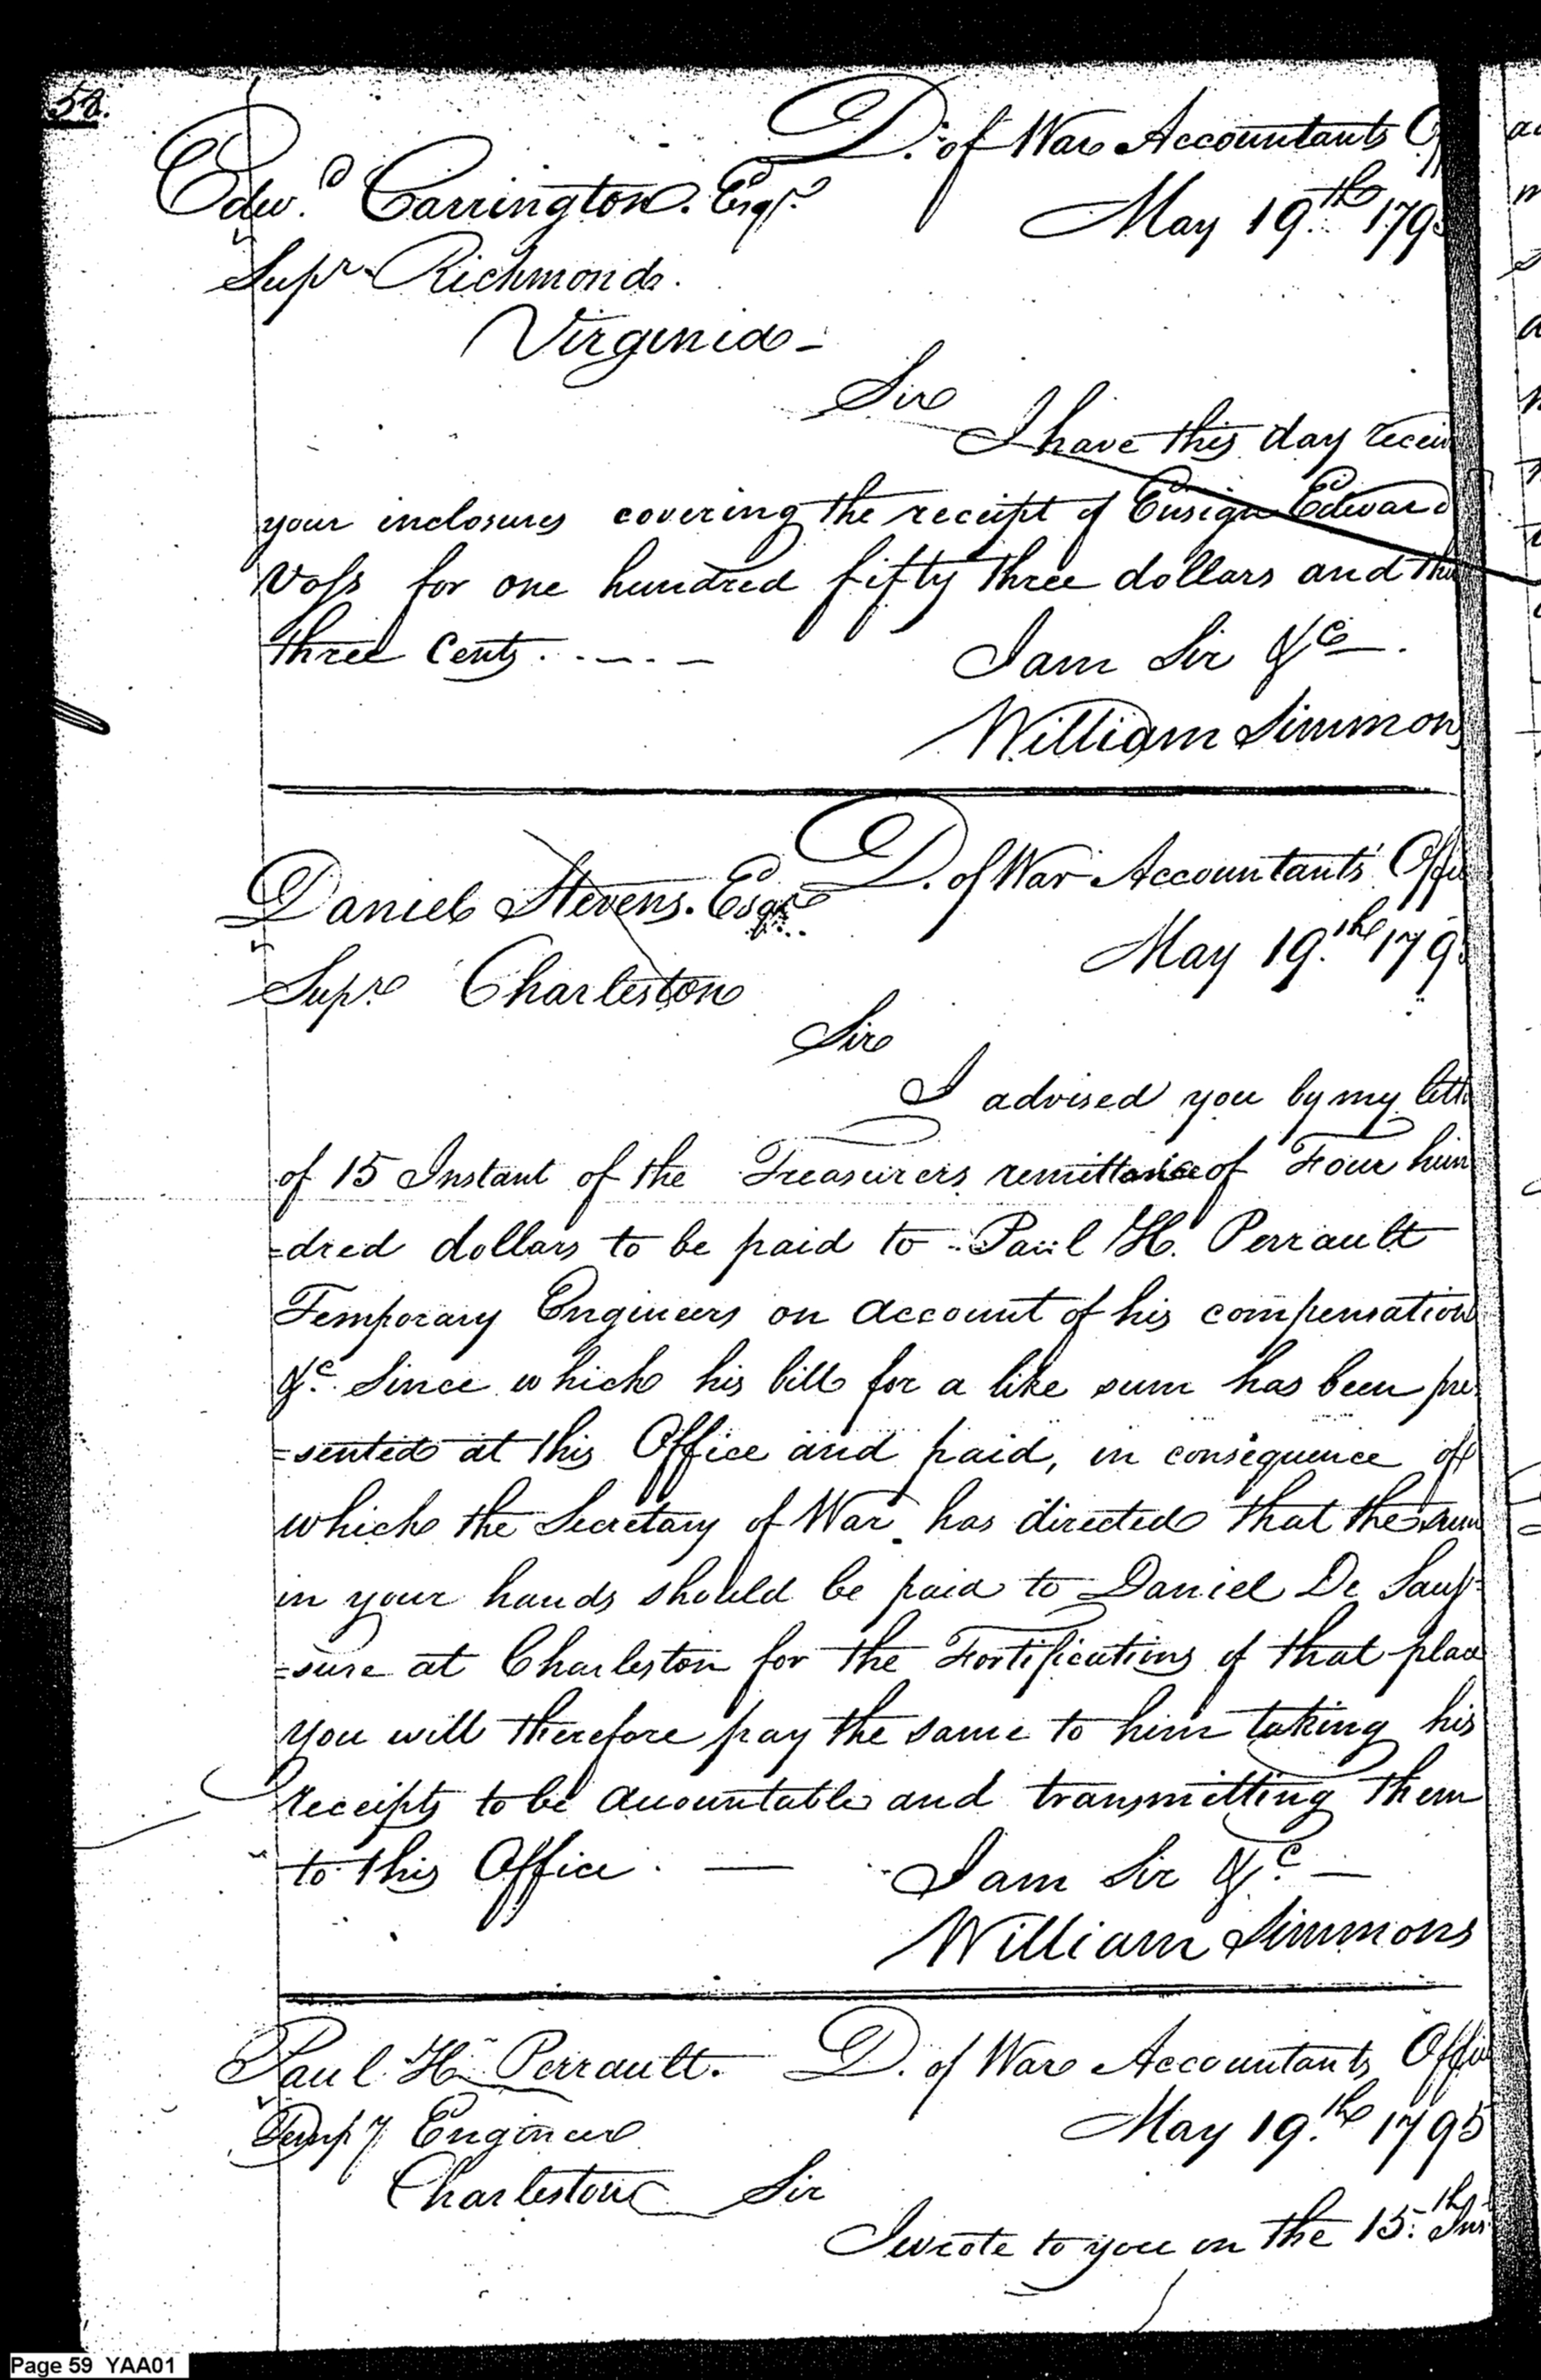 58.
D. of War Accountants O
Edwd. Carrington. Esqr.
May 19th. 179
Supr. Richmond.
Virginia -
Sir
I have this day recei
your inclosures covering the receipt of Ensign Edward
Voss for one hundred fifty three dollars and thi
three Cents
I am Sir &c.
William Simmons
D. of War Accountants Offi
Daniel Stevens. Esqr
May 19.th 179
Supr. Charleston
Sir
I advised you by my lette
of 15 Instant of the Treasurers remittance of Four hun
=dred dollars to be paid to Paul H. Perrault
Temporary Engineers on account of his compensation
&c. Since which his bill for a like sum has been pre
=sented at this Office and paid, in consequence of
which the Secretary of War has directed that the sum
in your hands should be paid to Daniel De Sauf-
=sure at Charleston for the Fortifications of that place
you will therefore pay the same to him taking his
receipts to be accountable and transmitting them
to this Office. —
I am Sir &c. —
William Simmons
Paul H. Perrault. D. of War Accountants Offi
Tempy Engineer
May 19.th 1795
Charleston Sir
I wrote to you on the 15.th Ins
Page 59 YAA01